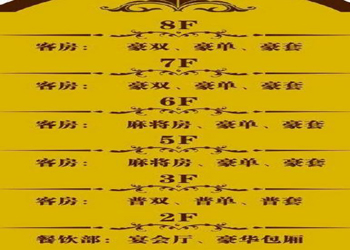 8F
客房：豪双、豪单、豪套
7F
客房：豪双、豪单、豪套
6F
客房：麻将房、豪单、豪套
5F
客房：麻将房、豪单、豪套
3F
客房：普双、普单、普套
2F
餐饮部：宴会厅、豪华包厢